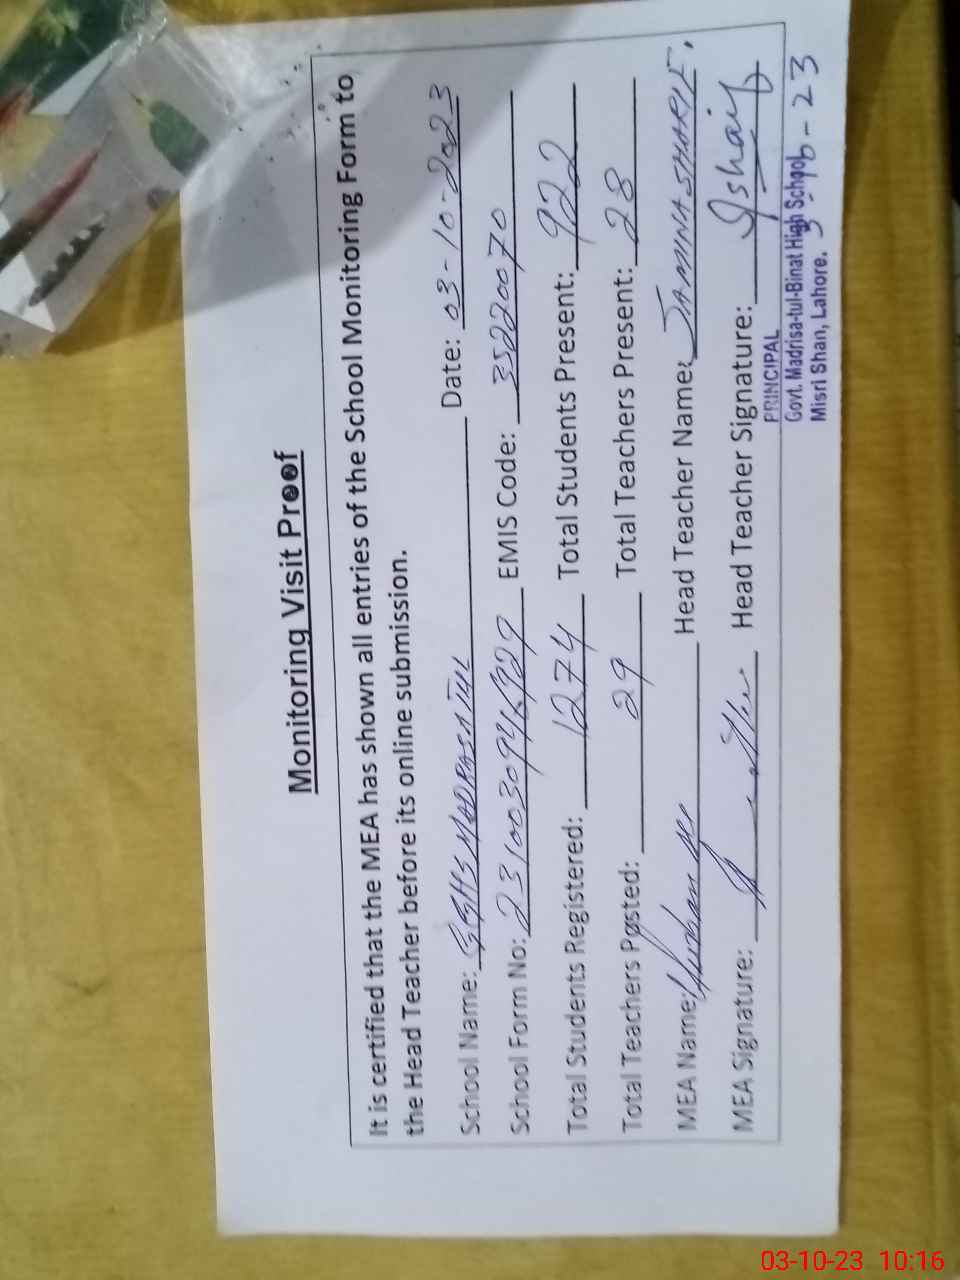 Monitoring Visit Proof
It is certified that the MEA has shown all entries of the School Monitoring Form to
the Head Teacher before its online submission.
School Name: GGHS MADRASATUL Date: 03-10-2023
School Form No: EMIS Code: 35220070
Total Students Registered: 1274 Total Students Present: 922
Total Teachers Posted: 29 Total Teachers Present: 28
MEA Name: Head Teacher Name: SHARIF.
MEA Signature: Head Teacher Signature:
PRINCIPAL
Govt. Madrisa-tul-Binat High School
Misri Shan, Lahore. 3-10-23
03-10-23 10:16